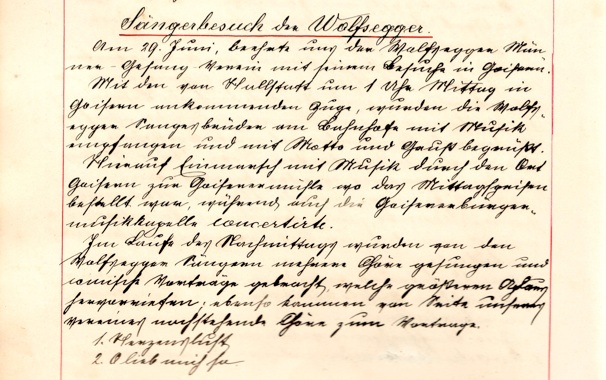 Sängerbesuch der Wolfsegger.
Am 29. Juni, beehrte uns der Wolfsegger Män-
ner-Gesang Verein mit seinem Besuche in Goisern.
Mit den von Hallstatt um 1 Uhr Mittag in
Goisern ankommenden Zuge, wurden die Wolfs-
egger Sangesbrüder am Bahnhofe mit Musik
empfangen und mit Motto und Gruß begrüßt.
Hierauf Einmarsch mit Musik durch den Ort
Goisern zur Goisernermühle wo das Mittagspeisen
bestellt war, während auch die Goiserer Bürger-
musikkapelle concertirte.
Im Laufe des Nachmittags wurden von den
Wolfsegger Sängern mehrere Chöre gesungen und
comische Vorträge gebracht, welche größeren Aplaus
hervorriefen; ebenso kammen von Seite unseres
Vereines nachstehende Chöre zum Vortrage.
1. Herzenslust
2. O lieb mich so